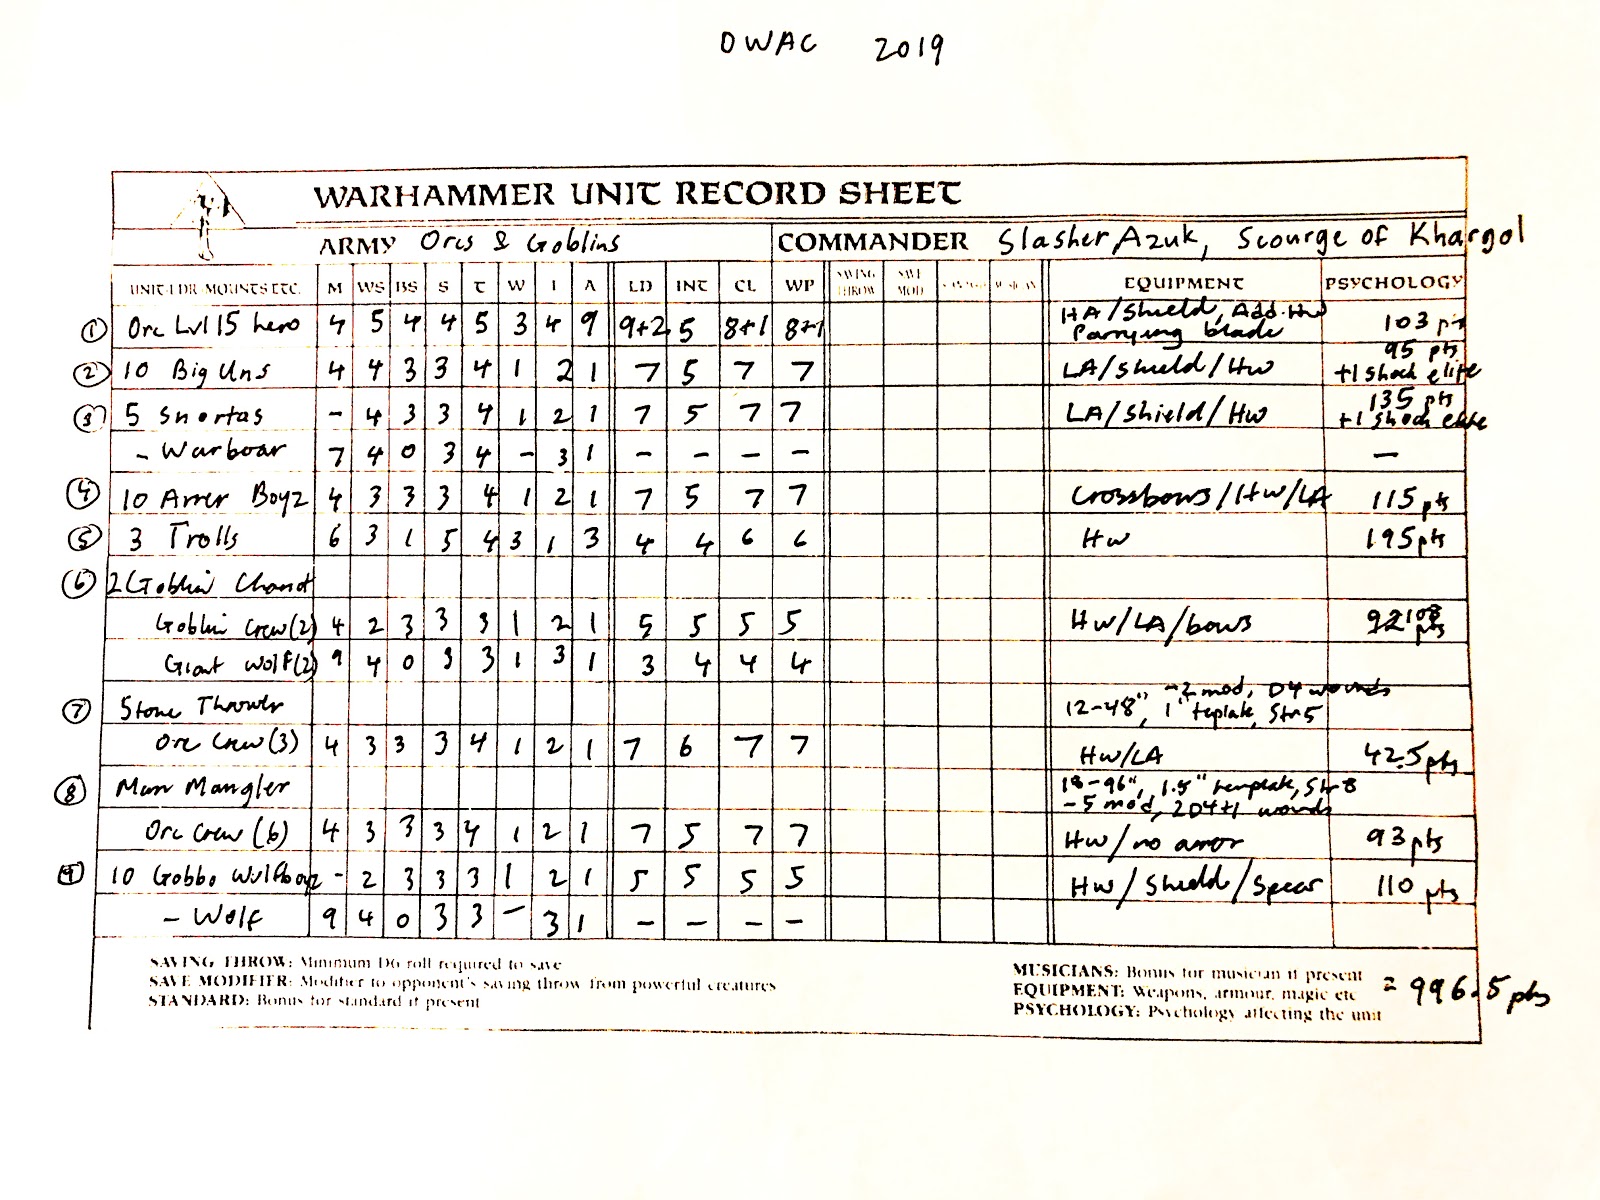 OWAC 2019
WARHAMMER UNIT RECORD SHEET
ARMY Orcs & Goblins COMMANDER Slasher Azuk, Scourge of Khargol
UNIT LDR MOUNTS ETC. M WS BS S T W I A LD INT CL WP SAVING THROW SAVE MOD EQUIPMENT PSYCHOLOGY
① Orc Lvl 15 hero 4 5 4 4 5 3 4 9 9+2 5 8+1 8+1 HA/Shield, Add. Hw Parrying blade 103 pts
② 10 Big Uns 4 4 3 3 4 1 2 1 7 5 7 7 LA/Shield/Hw 95 pts +1 shock elite
③ 5 Snortas - 4 3 3 4 1 2 1 7 5 7 7 LA/Shield/Hw 135 pts +1 shock elite
- Warboar 7 4 0 3 4 - 3 1 - - - - -
④ 10 Arrer Boyz 4 3 3 3 4 1 2 1 7 5 7 7 Crossbows/Hw/LA 115 pts
⑤ 3 Trolls 6 3 1 5 4 3 1 3 4 4 6 6 Hw 195 pts
⑥ 2 Goblin Chariot
Goblin Crew (2) 4 2 3 3 3 1 2 1 5 5 5 5 Hw/LA/bows 108 pts
Giant Wolf (2) 9 4 0 3 3 1 3 1 3 4 4 4
⑦ Stone Thrower 12-48", 1" teplate, Str 5 -2 mod, D4 wounds
Orc Crew (3) 4 3 3 3 4 1 2 1 7 6 7 7 Hw/LA 42.5 pts
⑧ Man Mangler 18-96", 1.5" template, Str 8 -5 mod, 2D4+1 wounds
Orc Crew (6) 4 3 3 3 4 1 2 1 7 5 7 7 Hw/no armor 93 pts
⑨ 10 Gobbo Wulfboyz - 2 3 3 3 1 2 1 5 5 5 5 Hw/Shield/Spear 110 pts
- Wolf 9 4 0 3 3 - 3 1 - - - -
SAVING THROW: Minimum D6 roll required to save
SAVE MODIFIER: Modifier to opponent's saving throw from powerful creatures
STANDARD: Bonus for standard if present
MUSICIANS: Bonus for musician if present
EQUIPMENT: Weapons, armour, magic etc
PSYCHOLOGY: Psychology affecting the unit
= 996.5 pts